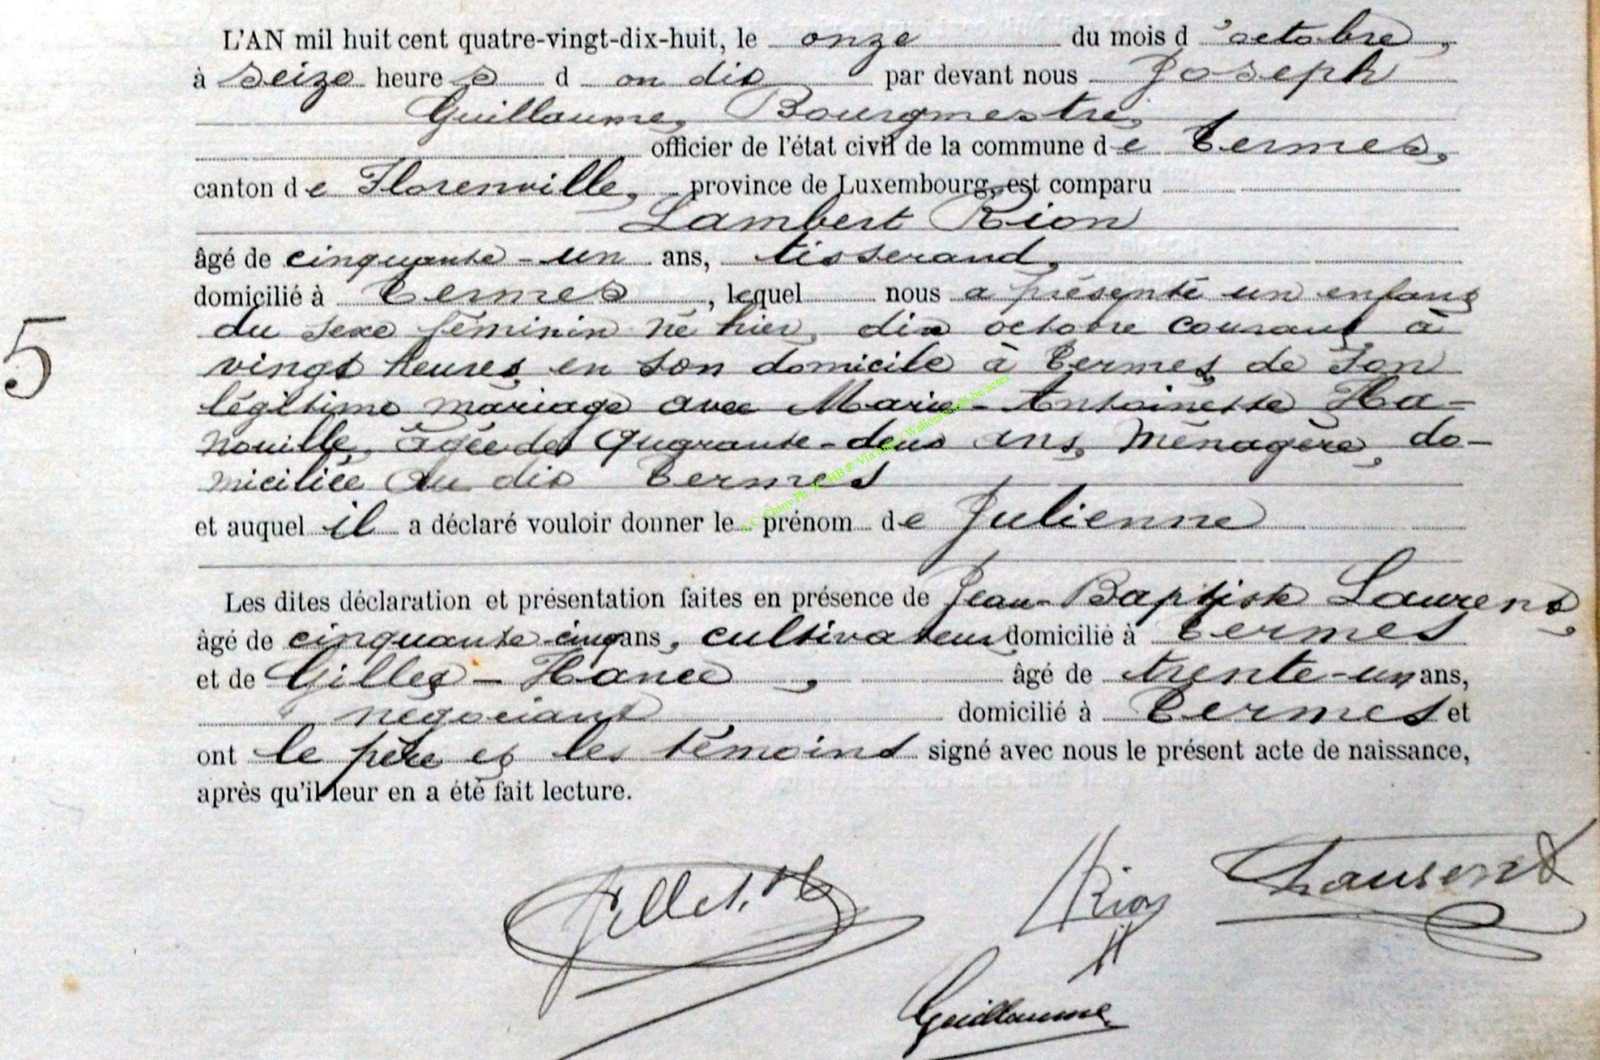 L'AN mil huit cent quatre-vingt-dix-huit, le onze du mois d'octobre,
à seize heures d on dit par devant nous Joseph
Guillaume, Bourgmestre,
officier de l'état civil de la commune de Termes,
canton de Florenville, province de Luxembourg, est comparu
Lambert Rion
âgé de cinquante-un ans, tisserand,
domicilié à Termes, lequel nous a présenté un enfant
du sexe féminin né hier, dix octobre courant à
vingt heures, en son domicile à Termes, de son
légitime mariage avec Marie-Antoinette Ha-
nouille, âgée de quarante-deux ans, ménagère, do-
miciliée au dit Termes
et auquel il a déclaré vouloir donner le prénom de Julienne
Les dites déclaration et présentation faites en présence de Jean-Baptiste Laurent,
5
âgé de cinquante-cinq ans, cultivateur domicilié à Termes
et de Gilles-Hance, âgé de trente-un ans,
négociant domicilié à Termes et
ont le père et les témoins signé avec nous le présent acte de naissance,
après qu'il leur en a été fait lecture.
Rion
Guillaume